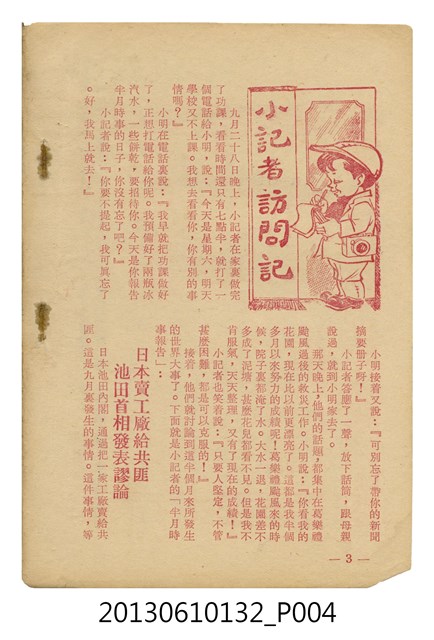 小記者訪問記
九月二十八日晚上，小記者在家裏做完
了功課，看看時間還只有七點半，就打了一
個電話給小明，說：『今天是星期六，明天
學校又不上課。我想去看看你，你有別的事
情嗎？』
小明在電話裏說：『我早就把功課做好
了，正想打電話給你呢。我預備好了兩瓶冰
汽水，一些餅乾，要招待你。今天是你報告
半月時事的日子，你沒有忘了吧？』
小記者說：『你要不提起，我可眞忘了
。好，我馬上就去！』
小明接着又說：『可別忘了帶你的新聞
摘要册子呀！』
小記者答應了一聲，放下話筒，跟母親
說過，就到小明家去了。
那天晚上，他們的話題，都集中在葛樂禮
颱風過後的救災工作。小明說：『你看我的
花園，現在比以前更漂亮了。這都是我半個
多月以來努力的成績呢！葛樂禮颱風來的時
候，院子裏都淹了水。大水一退，花園差不
多成了泥塘，甚麼花兒都看不見。但是我不
肯服氣，天天整理，又有了現在的成績！』
小記者也笑着說：『只要人堅定，不管
甚麼困難，都是可以克服的！』
接着，他們就討論到這半個月來所發生
的世界大事了。下面就是小記者的『半月時
事報告』：
日本賣工廠給共匪
池田首相發表謬論
日本池田內閣，通過把一家工廠賣給共
匪。這是九月裏發生的事情。這件事情，等
— 3 —
20130610132_P004